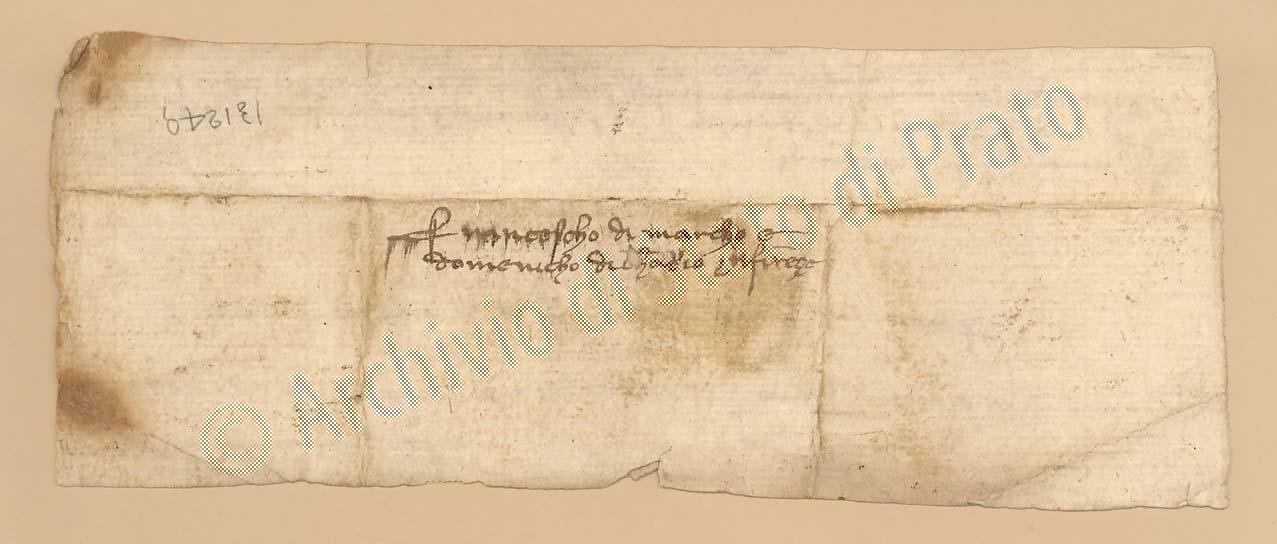 131249
Francescho di marcho e
domenicho di chābio in firēze
© Archivio di Stato di Prato